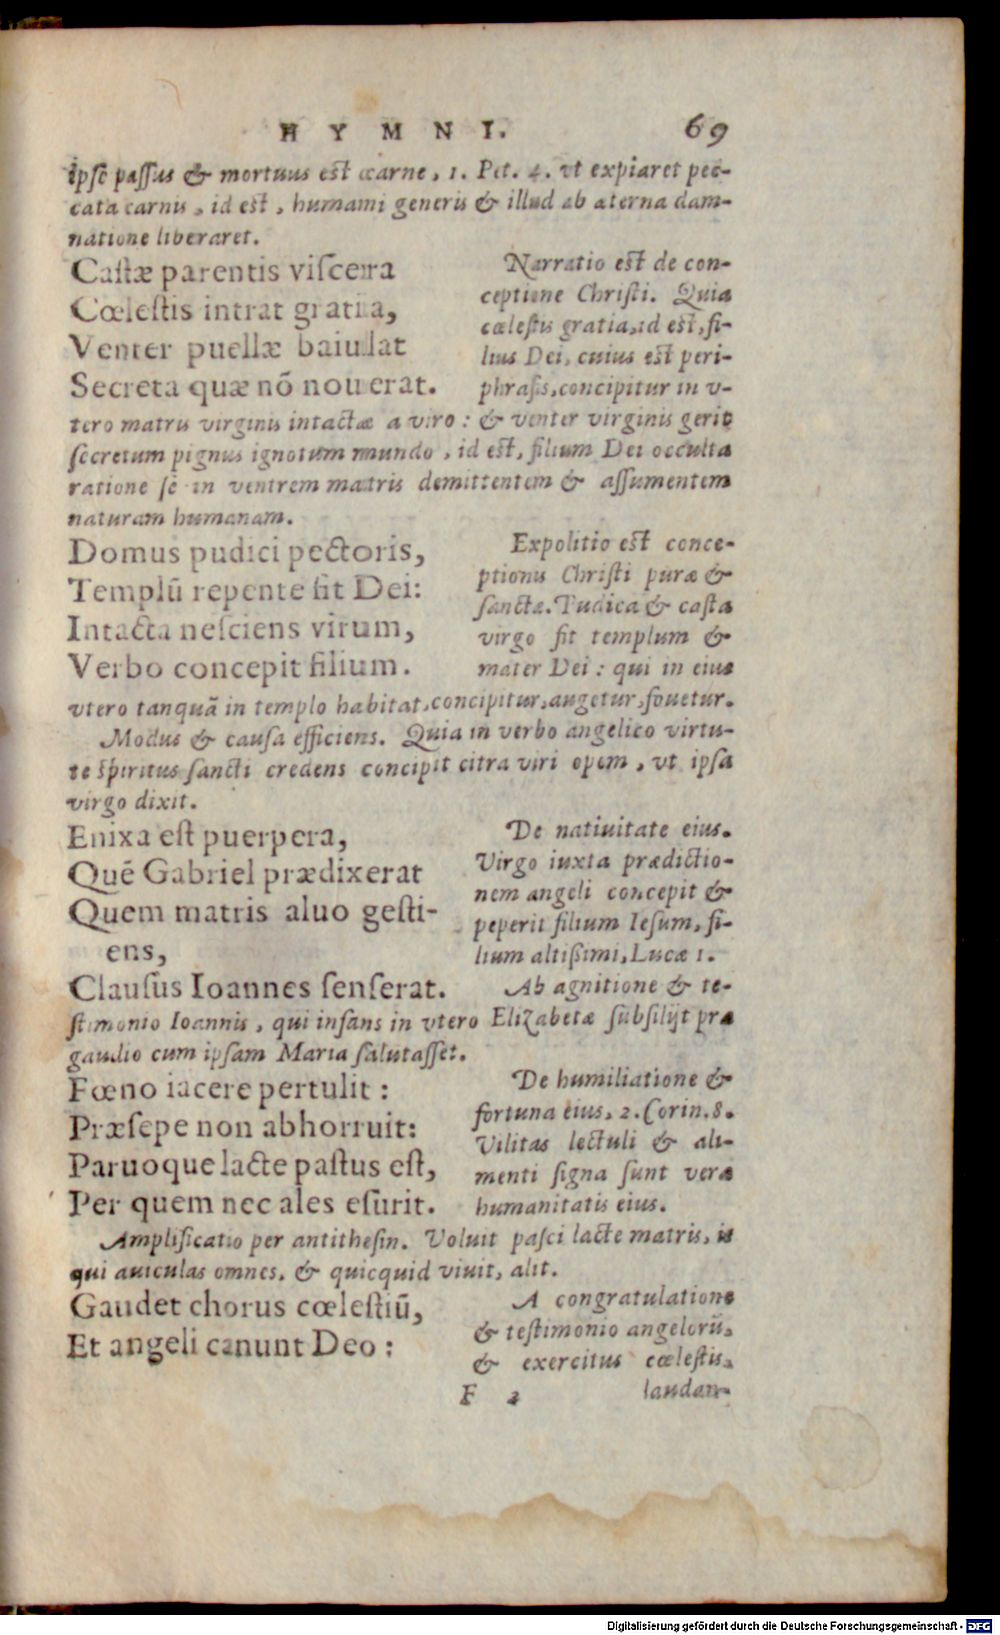 HYMNI. 69
ipse passus & mortuus est carne, 1. Pet. 4. vt expiaret pec-
cata carnis, id est, humani generis & illud ab æterna dam-
natione liberaret.
Castæ parentis viscera
Cœlestis intrat gratia,
Venter puellæ baiulat
Secreta quæ nõ nouerat.
Narratio est de con-
ceptione Christi. Quia
cœlestis gratia, id est, fi-
lius Dei, cuius est peri-
phrasis, concipitur in v-
tero matris virginis intactæ a viro: & venter virginis gerit
secretum pignus ignotum mundo, id est, filium Dei occulta
ratione se in ventrem matris demittentem & assumentem
naturam humanam.
Domus pudici pectoris,
Templũ repente fit Dei:
Intacta nesciens virum,
Verbo concepit filium.
Expolitio est conce-
ptionis Christi puræ &
sanctæ. Pudica & casta
virgo fit templum &
mater Dei: qui in eius
vtero tanquã in templo habitat, concipitur, augetur, fouetur.
Modus & causa efficiens. Quia in verbo angelico virtu-
te spiritus sancti credens concipit citra viri opem, vt ipsa
virgo dixit.
Enixa est puerpera,
Quẽ Gabriel prædixerat
Quem matris aluo gesti-
ens,
Clausus Ioannes senserat.
De natiuitate eius.
Virgo iuxta prædictio-
nem angeli concepit &
peperit filium Iesum, fi-
lium altißimi, Lucæ 1.
Ab agnitione & te-
stimonio Ioannis, qui infans in vtero Elizabetæ subsilijt præ
gaudio cum ipsam Maria salutasset.
Fœno iacere pertulit:
Præsepe non abhorruit:
Paruoque lacte pastus est,
Per quem nec ales esurit.
De humiliatione &
fortuna eius, 2. Corin. 8.
Vilitas lectuli & ali-
menti signa sunt veræ
humanitatis eius.
Amplificatio per antithesin. Voluit pasci lacte matris, is
qui auiculas omnes, & quicquid viuit, alit.
Gaudet chorus cœlestiũ,
Et angeli canunt Deo:
A congratulatione
& testimonio angelorũ,
& exercitus cœlestis,
F 2 laudan-
Digitalisierung gefördert durch die Deutsche Forschungsgemeinschaft - DFG